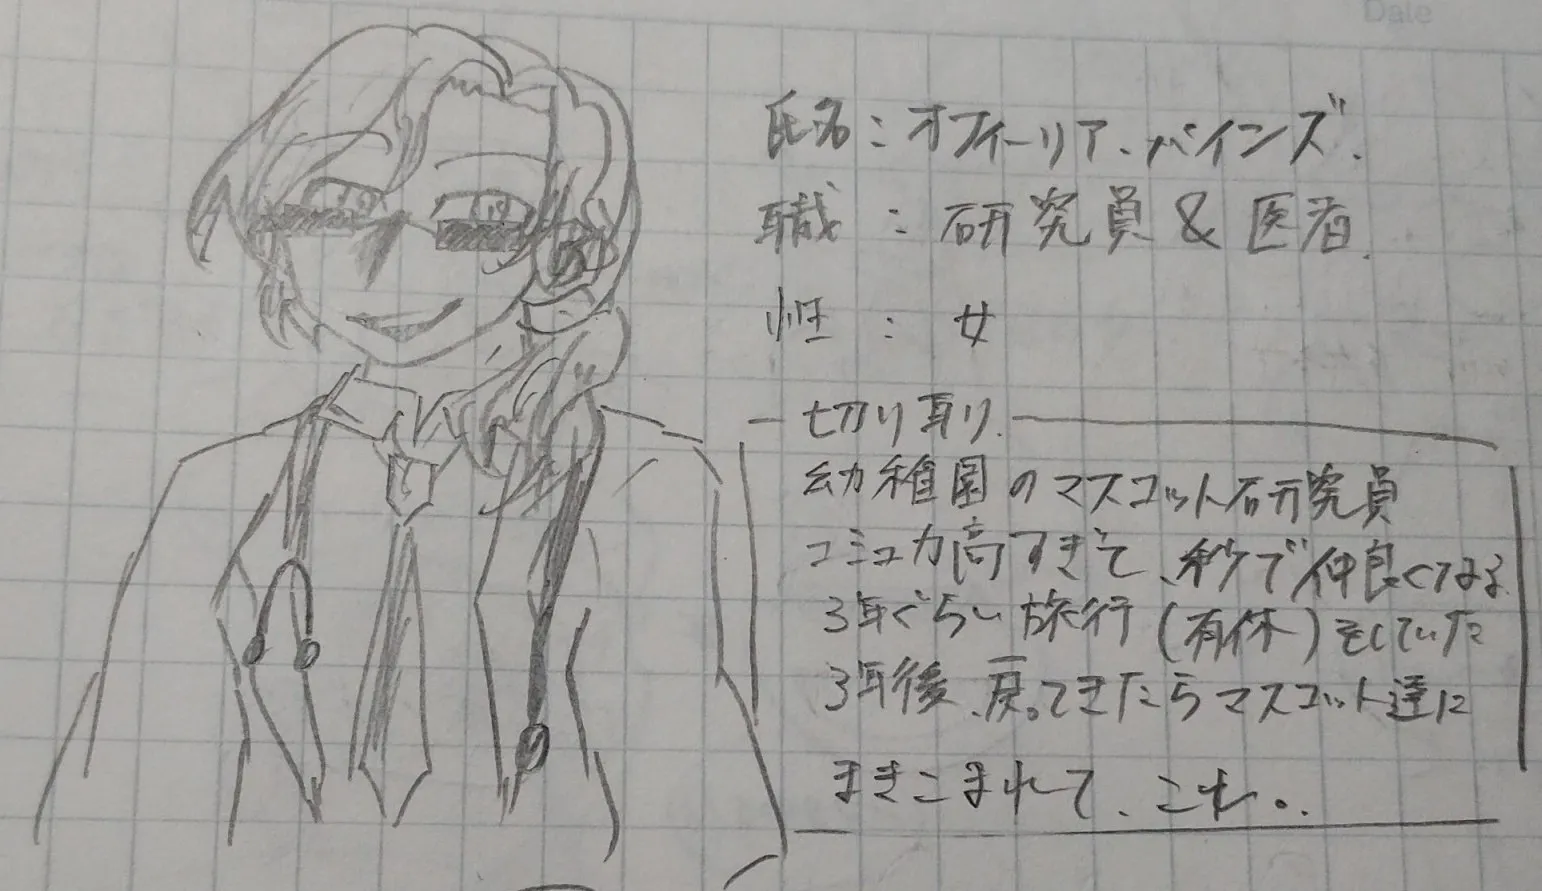 Date
氏名：オフィーリア．バインズ．
職：研究員＆医者．
性：女
切り取り．
幼稚園のマスコット研究員
コミュ力高すぎて、秒で仲良くなる．
3年ぐらい旅行（有休）をしていた
3年後、戻ってきたらマスコット達に
まきこまれて、これ。．